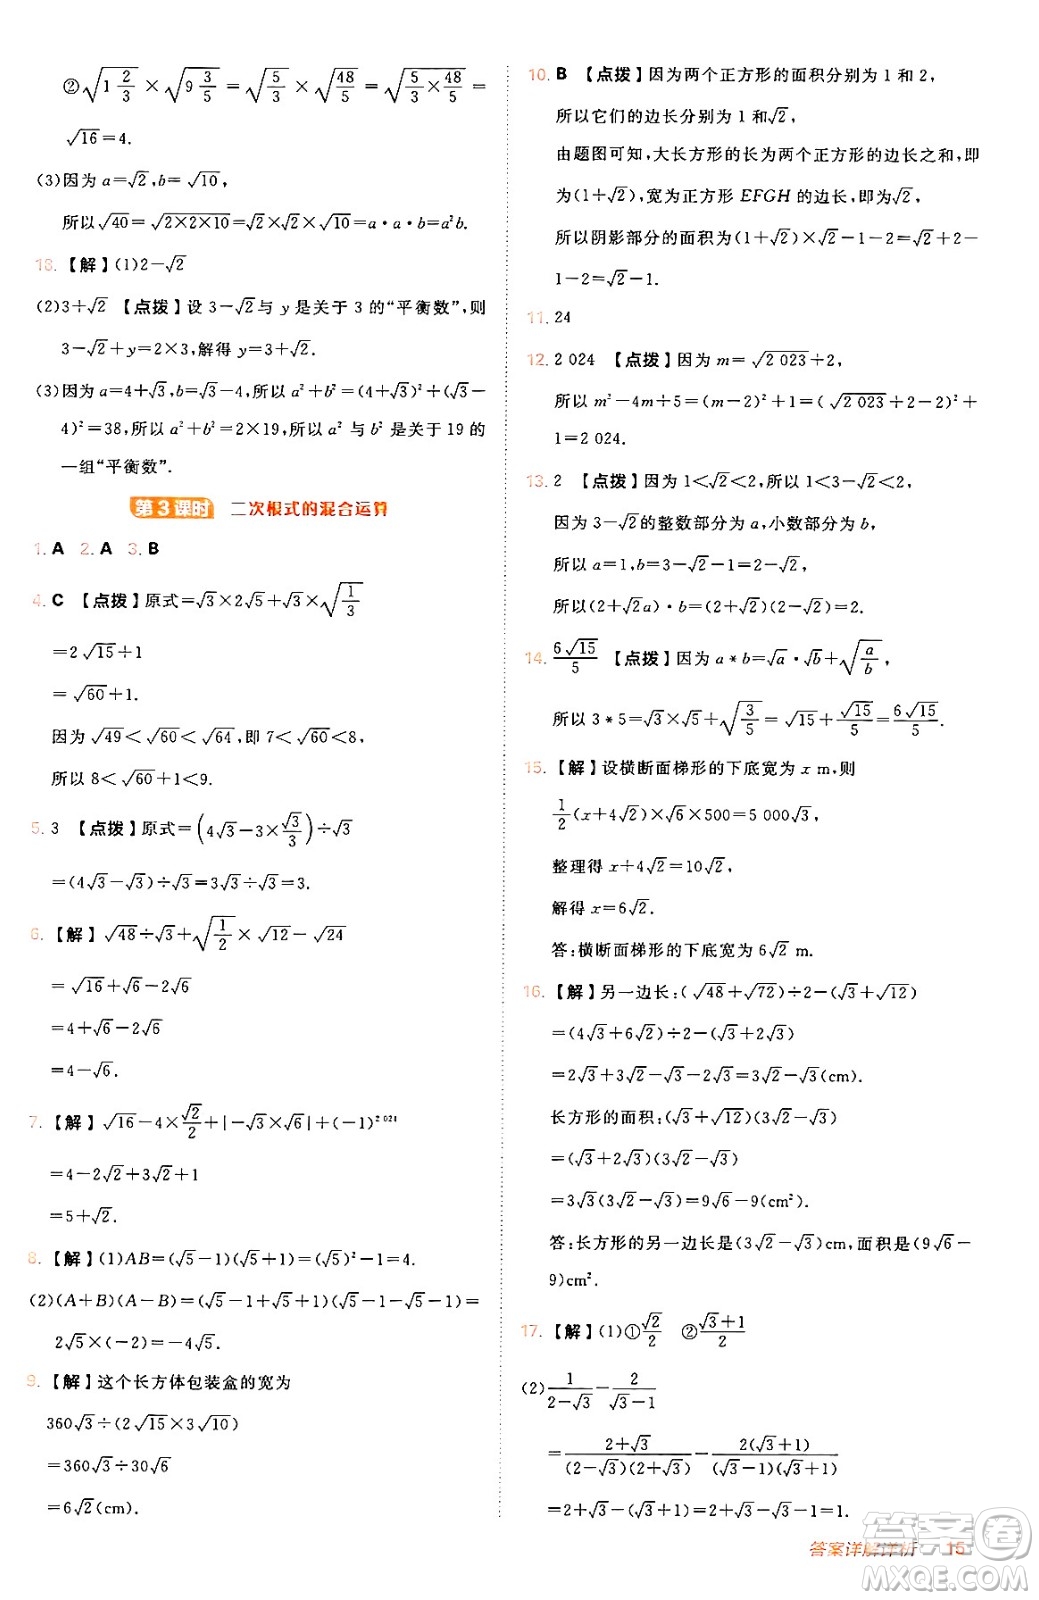 ②√(1 2/3)×√(9 3/5)=√(5/3)×√(48/5)=√(5/3×48/5)=
√16=4.
(3)因为 a=√2,b=√10,
所以√40=√(2×2×10)=√2×√2×√10=a·a·b=a²b.
13.【解】(1)2-√2
(2)3+√2 【点拨】设 3-√2与 y 是关于 3 的“平衡数”,则
3-√2+y=2×3,解得 y=3+√2.
(3)因为 a=4+√3,b=√3-4,所以 a²+b²=(4+√3)²+(√3-
4)²=38,所以 a²+b²=2×19,所以 a² 与 b² 是关于 19 的
一组“平衡数”.
第3课时 二次根式的混合运算
1. A 2. A 3. B
4. C 【点拨】原式=√3×2√5+√3×√(1/3)
=2√15+1
=√60+1.
因为√49<√60<√64,即 7<√60<8,
所以 8<√60+1<9.
5. 3 【点拨】原式=(4√3-3×√3/3)÷√3
=(4√3-√3)÷√3=3√3÷√3=3.
6.【解】√48÷√3+√(1/2)×√12-√24
=√16+√6-2√6
=4+√6-2√6
=4-√6.
7.【解】√16-4×√2/2+|-√3×√6|+(-1)²⁰²⁴
=4-2√2+3√2+1
=5+√2.
8.【解】(1)AB=(√5-1)(√5+1)=(√5)²-1=4.
(2)(A+B)(A-B)=(√5-1+√5+1)(√5-1-√5-1)=
2√5×(-2)=-4√5.
9.【解】这个长方体包装盒的宽为
360√3÷(2√15×3√10)
=360√3÷30√6
=6√2(cm).
10. B 【点拨】因为两个正方形的面积分别为 1 和 2,
所以它们的边长分别为 1 和√2,
由题图可知,大长方形的长为两个正方形的边长之和,即
为(1+√2),宽为正方形 EFGH 的边长,即为√2,
所以阴影部分的面积为(1+√2)×√2-1-2=√2+2-
1-2=√2-1.
11. 24
12. 2 024 【点拨】因为 m=√2 023+2,
所以 m²-4m+5=(m-2)²+1=(√2 023+2-2)²+
1=2 024.
13. 2 【点拨】因为 1<√2<2,所以 1<3-√2<2,
因为 3-√2的整数部分为 a,小数部分为 b,
所以 a=1,b=3-√2-1=2-√2,
所以(2+√2a)·b=(2+√2)(2-√2)=2.
14. 6√15/5 【点拨】因为 a*b=√a·√b+√(a/b),
所以 3*5=√3×√5+√(3/5)=√15+√15/5=6√15/5.
15.【解】设横断面梯形的下底宽为 x m,则
1/2(x+4√2)×√6×500=5 000√3,
整理得 x+4√2=10√2,
解得 x=6√2.
答:横断面梯形的下底宽为 6√2 m.
16.【解】另一边长:(√48+√72)÷2-(√3+√12)
=(4√3+6√2)÷2-(√3+2√3)
=2√3+3√2-3√3=3√2-√3(cm).
长方形的面积:(√3+√12)(3√2-√3)
=(√3+2√3)(3√2-√3)
=3√3(3√2-√3)=9√6-9(cm²).
答:长方形的另一边长是(3√2-√3)cm,面积是(9√6-
9)cm².
17.【解】(1)①√2/2 ②(√3+1)/2
(2)1/(2-√3)-2/(√3-1)
=(2+√3)/((2-√3)(2+√3))-2(√3+1)/((√3-1)(√3+1))
=2+√3-(√3+1)=2+√3-√3-1=1.
答案详解详析 15
答案圈
MXQE.COM